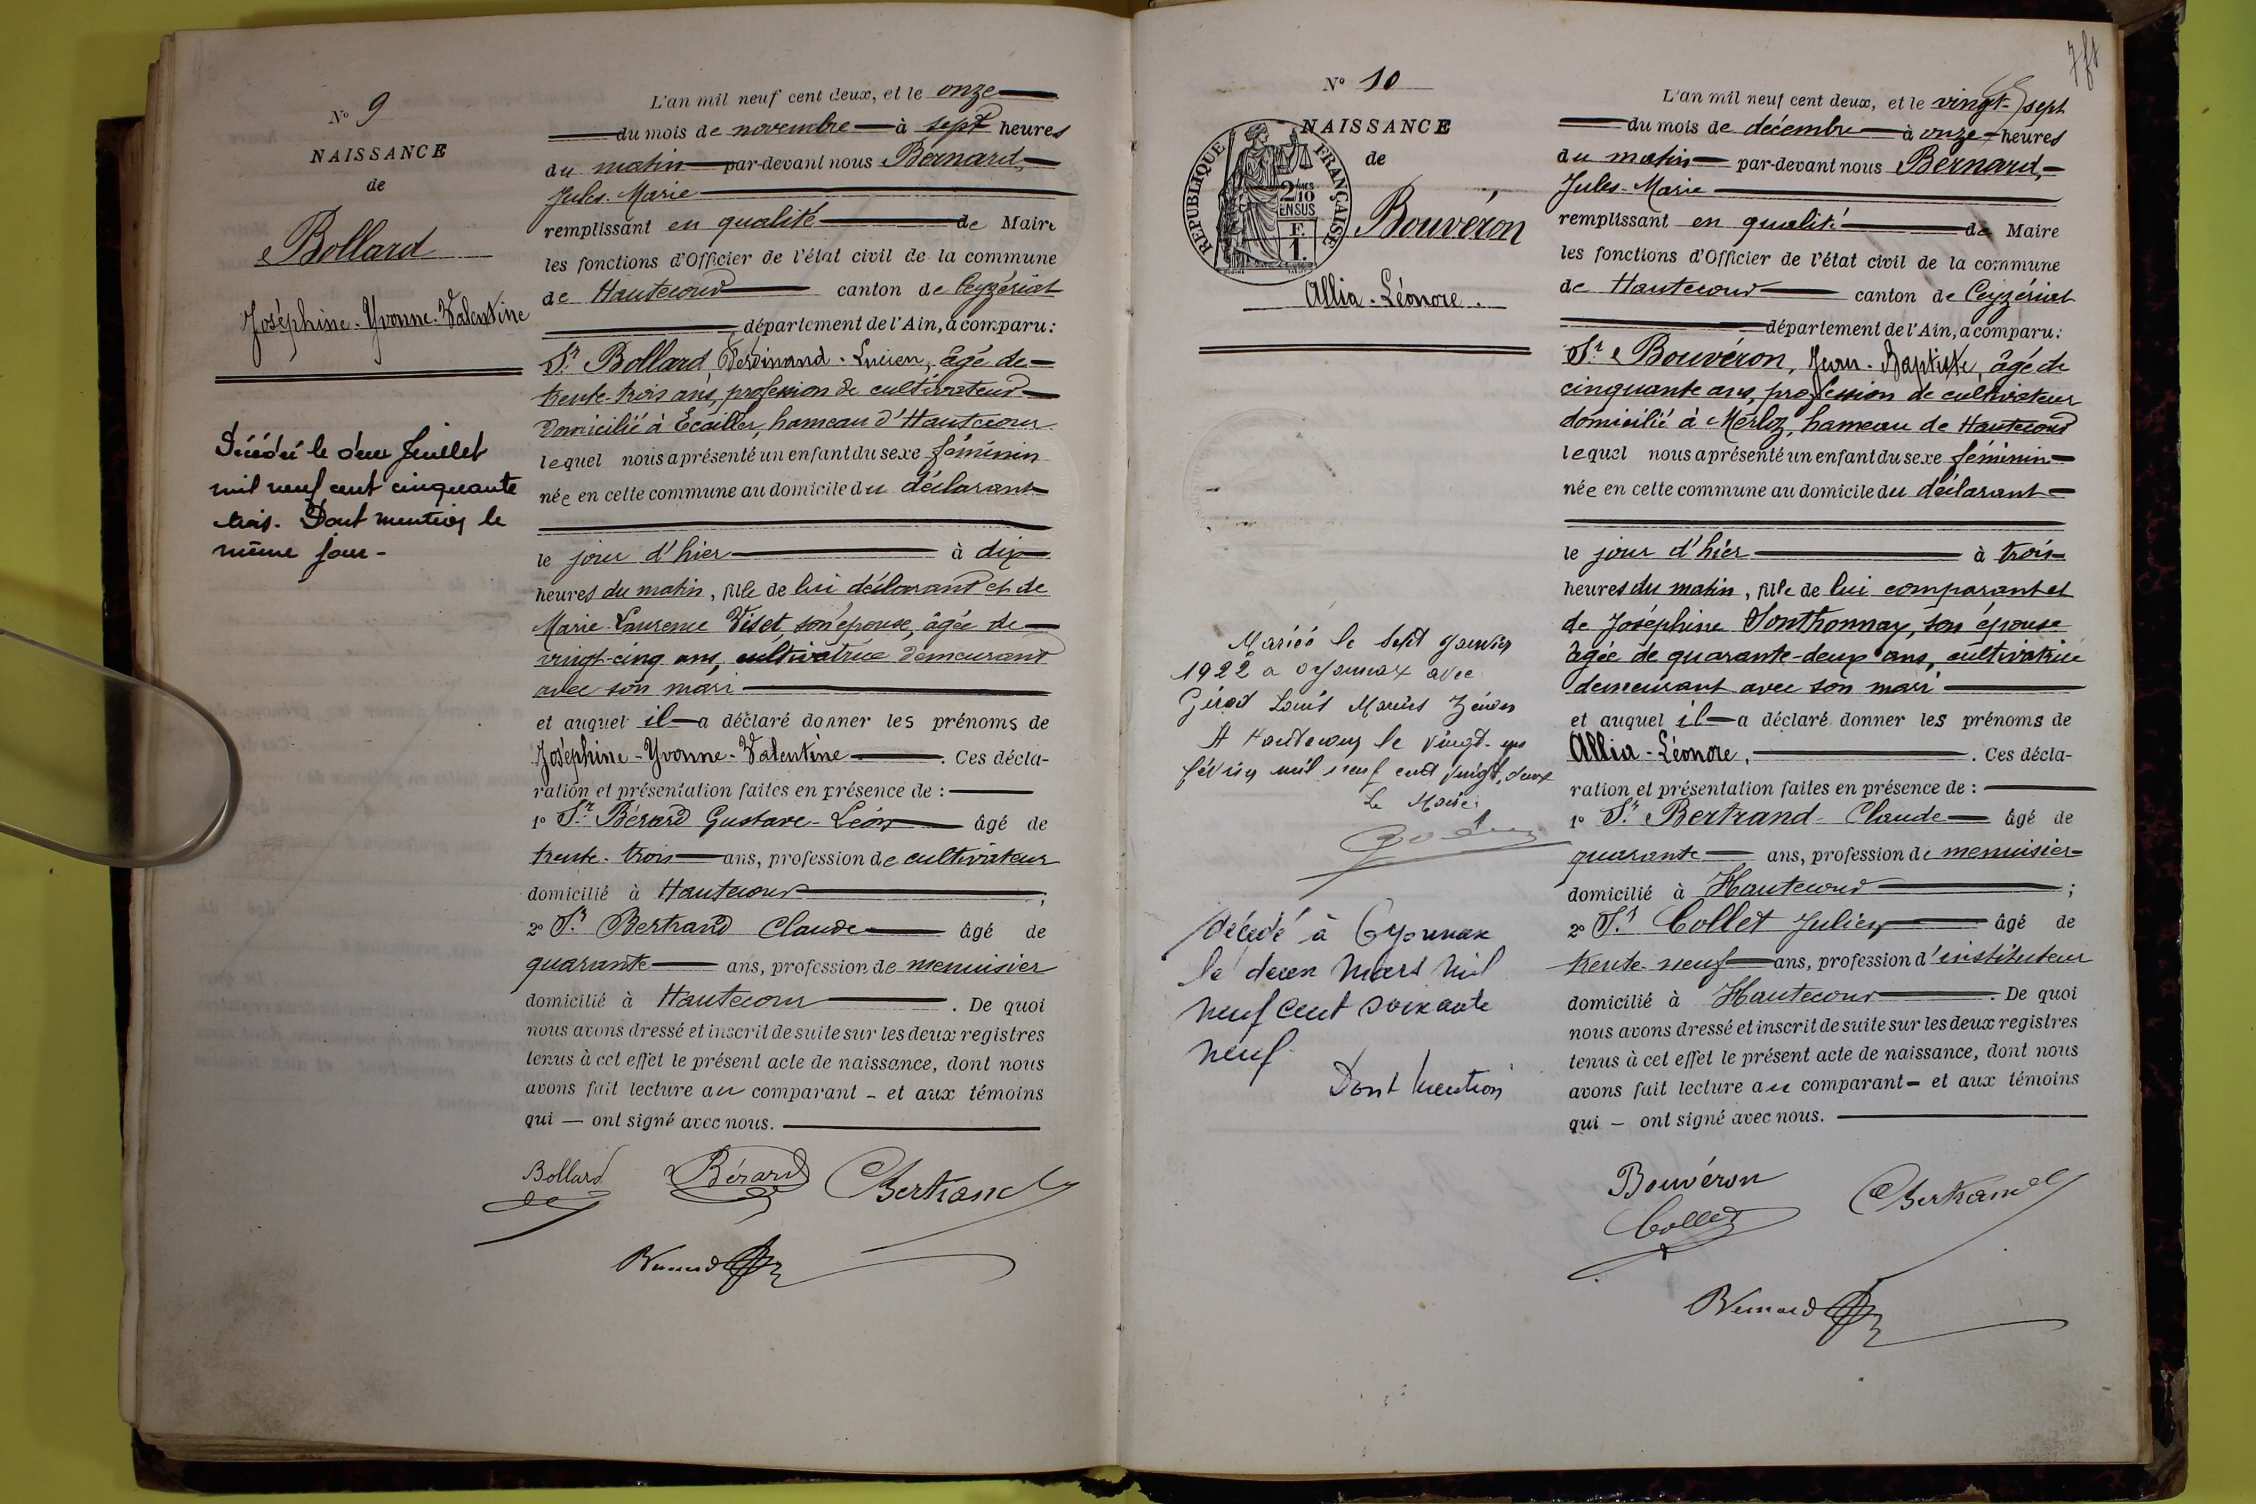 N° 9
NAISSANCE
de
Bollard
Joséphine-Yvonne-Valentine
Décédée le deux Juillet
mil neuf cent cinquante
trois. Dont mention le
même jour -
L'an mil neuf cent deux, et le onze
du mois de novembre à sept heures
du matin par-devant nous Bernard,
Jules-Marie
remplissant en qualité de Maire
les fonctions d'Officier de l'état civil de la commune
de Hautecour canton de Ceyzériat
département de l'Ain, a comparu:
Sr Bollard, Ferdinand-Lucien, âgé de
trente-trois ans, profession de cultivateur
domicilié à Ecailles, hameau d'Hautecour
lequel nous a présenté un enfant du sexe féminin
née en cette commune au domicile du déclarant
le jour d'hier à dix
heures du matin, fille de lui déclarant et de
Marie-Laurence Viset, son épouse, âgée de
vingt-cinq ans, cultivatrice demeurant
avec son mari
et auquel il a déclaré donner les prénoms de
Joséphine-Yvonne-Valentine. Ces décla-
ration et présentation faites en présence de :
1° Sr Bérard Gustave-Léon âgé de
trente-trois ans, profession de cultivateur
domicilié à Hautecour;
2° Sr Bertrand Claude âgé de
quarante ans, profession de menuisier
domicilié à Hautecour. De quoi
nous avons dressé et inscrit de suite sur les deux registres
tenus à cet effet le présent acte de naissance, dont nous
avons fait lecture au comparant - et aux témoins
qui — ont signé avec nous.
Bollard Bérard Bertrand
Bernard
7 ft
N° 10
NAISSANCE
de
RÉPUBLIQUE FRANÇAISE
2/10
EN SUS
F.
1.
Bouvéron
Allia-Léonore.
Mariée le sept Janvier
1922 a oyonnax avec
Girod Louis Marius
A Hautecour le vingt-un
février mil neuf cent vingt-deux
Le Maire:
décédé à Oyonnax
le deux Mars mil
neuf cent soixante
neuf.
Dont mention
L'an mil neuf cent deux, et le vingt-sept
du mois de décembre à onze heures
du matin par-devant nous Bernard,
Jules-Marie
remplissant en qualité de Maire
les fonctions d'Officier de l'état civil de la commune
de Hautecour canton de Ceyzériat
département de l'Ain, a comparu:
Sr Bouvéron, Jean-Baptiste, âgé de
cinquante ans, profession de cultivateur
domicilié à Merloz, hameau de Hautecour
lequel nous a présenté un enfant du sexe féminin
née en cette commune au domicile du déclarant
le jour d'hier à trois
heures du matin, fille de lui comparant et
de Joséphine Sonthonnay, son épouse
âgée de quarante-deux ans, cultivatrice
demeurant avec son mari
et auquel il a déclaré donner les prénoms de
Allia-Léonore,. Ces décla-
ration et présentation faites en présence de :
1° Sr Bertrand-Claude âgé de
quarante ans, profession de menuisier
domicilié à Hautecour;
2° Sr Collet Julien âgé de
trente-neuf ans, profession d'instituteur
domicilié à Hautecour. De quoi
nous avons dressé et inscrit de suite sur les deux registres
tenus à cet effet le présent acte de naissance, dont nous
avons fait lecture au comparant - et aux témoins
qui — ont signé avec nous.
Bouvéron Bertrand
Collet
Bernard